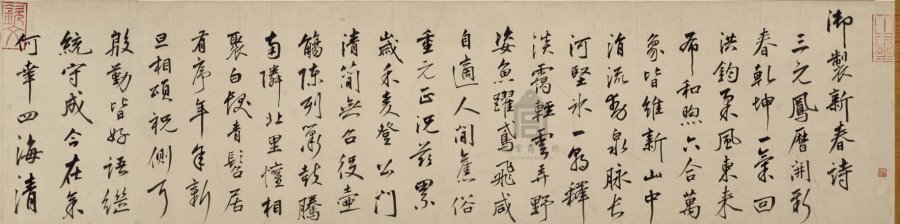 御製新春詩
三元鳳曆開新
春乾坤一氣回
洪鈞柔風東來
布和煦六合萬
象皆維新山中
涓流動泉脉長
河堅冰一朝釋
淡靄輕雲弄野
姿魚躍鳶飛咸
自適人間舊俗
重元正況茲累
歲禾麥登公門
清簡無召役壺
觴陳列簫鼓騰
南隣北里懽相
聚白髮青髫居
有序年年新
旦相頌祝側耳
殷勤皆好語繼
統守成今在余
何幸四海清